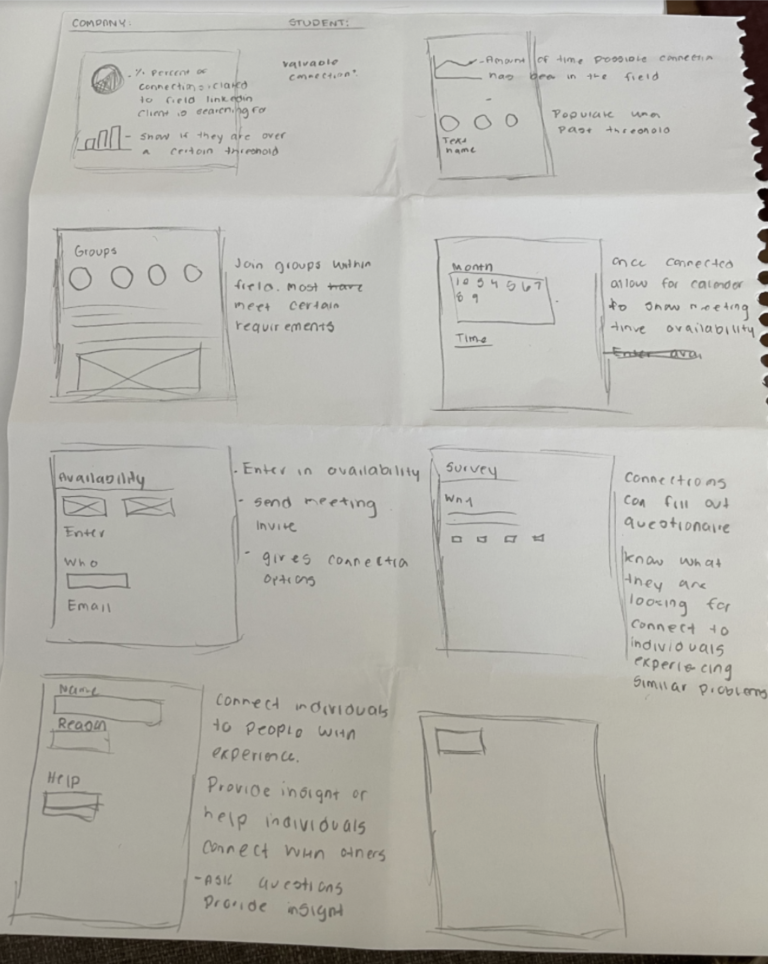 COMPANY:
STUDENT:
- % Percent of
connections related
to field linkedin
client is searching for
- Show if they are over
a certain threshold
valuable
connection?
- Amount of time possible connection
has been in the field
Text
name
Populate when
past threshold
Groups
Join groups within
field. Must have
meet certain
requirements
Month
5 4 5 6 7
8 9
Time
once connected
allow for calender
to show meeting
time availability
Enter ava
Availability
Enter
Who
Email
- Enter in availability
- send meeting
invite
- gives connection
options
Survey
Why
Connections
can fill out
questionaire
know what
they are
looking for
connect to
individuals
experiecing
similar problems
Name
Reason
Help
Connect individuals
to people with
experience.
Provide insight or
help individuals
connect when others
- Ask questions
Provide insight